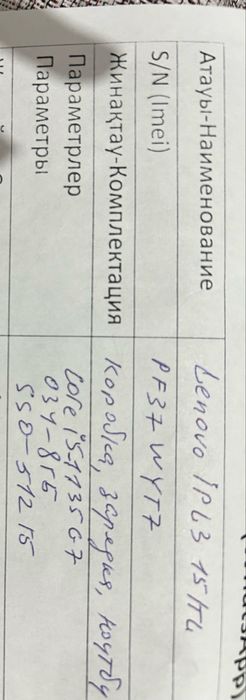 Атауы-Наименование Lenovo IPL3 15ITL
S/N (Imei) PF37WYT7
Жинақтау-Комплектация Коробка, зарядка, ноутбу
Параметрлер Core i5-1135G7
Параметры ОЗУ-8ГБ
SSD-512ГБ